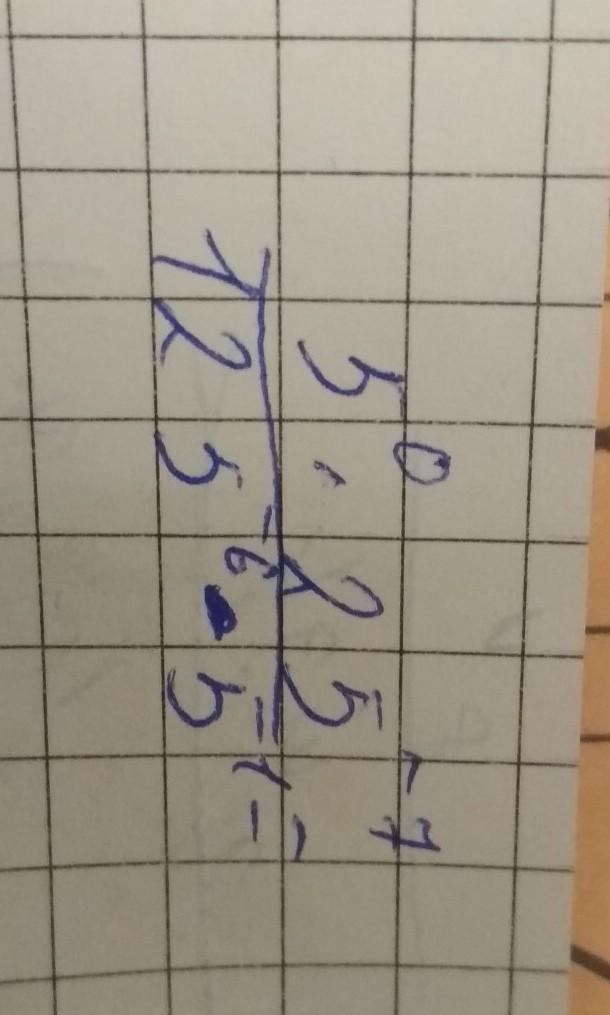 5⁰ · 25⁻⁷ =
125⁻⁶ · 5⁻¹